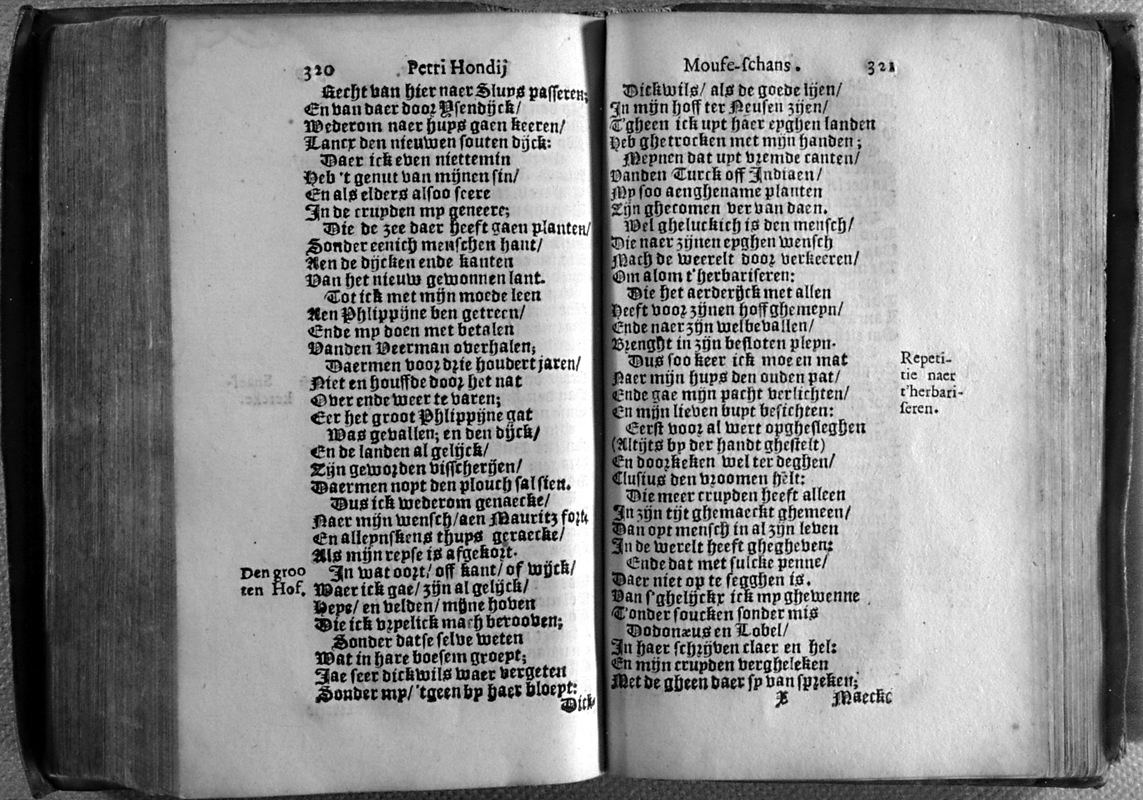 320 Petri Hondij
Recht van hier naer Sluys passeren;
En van daer door Ysendijck/
Wederom naer huys gaen keeren/
Lancx den nieuwen souten dijck:
Daer ick even niettemin
Heb 't genut van mijnen sin/
En als elders alsoo seere
In de cruyden my geneere;
Die de zee daer heeft gaen planten/
Sonder eenich menschen hant/
Aen de dijcken ende kanten
Van het nieuw gewonnen lant.
Tot ick met mijn moede leen
Aen Phlippijne ben getreen/
Ende my doen met betalen
Vanden Veerman overhalen;
Daermen voor drie houdert jaren/
Niet en houffde door het nat
Over ende weer te varen;
Eer het groot Phlippijne gat
Was gevallen; en den dijck/
En de landen al gelijck/
Zijn geworden visscherijen/
Daermen nopt den plouch sal sien.
Dus ick wederom genaecke/
Naer mijn wensch/ aen Mauritz fort,
En alleynskens thuys geraecke/
Als mijn reyse is afgekort.
Den groo
ten Hof.
In wat oort/ off kant/ of wijck/
Waer ick gae/ zijn al gelijck/
Heye/ en velden/ mijne hoven
Die ick vrpelick mach berooven;
Sonder datse selve weten
Wat in hare boesem groept;
Jae seer dickwils waer vergeten
Sonder my/ 'tgeen by haer bloept:
Dick-
Mouse-schans. 321
Dickwils/ als de goede lijen/
In mijn hoff ter Neusen zijen/
T'gheen ick upt haer eyghen landen
Heb ghetrocken met mijn handen;
Meynen dat upt vremde canten/
Vanden Turck off Indiaen/
My soo aenghename planten
Zijn ghecomen ver van daen.
Wel gheluckich is den mensch/
Die naer zijnen eyghen wensch
Mach de weerelt door verkeeren/
Om alom t'herbariseren:
Die het aerderijck met allen
Heeft voor zijnen hoff ghemeyn/
Ende naer zijn welbevallen/
Brenght in zijn besloten pleyn.
Dus soo keer ick moe en mat
Naer mijn huys den ouden pat/
Ende gae mijn pacht verlichten/
En mijn lieven buyt besichten:
Repeti-
tie naer
t'herbari-
seren.
Eerst voor al wert opghesleghen
(Altijts by der handt ghestelt)
En doorkeken wel ter deghen/
Clusius den vroomen helt:
Die meer cruyden heeft alleen
In zijn tijt ghemaeckt ghemeen/
Dan opt mensch in al zijn leven
In de werelt heeft ghegheven:
Ende dat met sulcke penne/
Daer niet op te segghen is.
Van s'ghelijckx ick my ghewenne
T'onder soucken sonder mis
Dodonæus en Lobel/
In haer schrijven claer en hel:
En mijn cruyden vergheleken
Met de gheen daer sy van spreken;
X Maecke